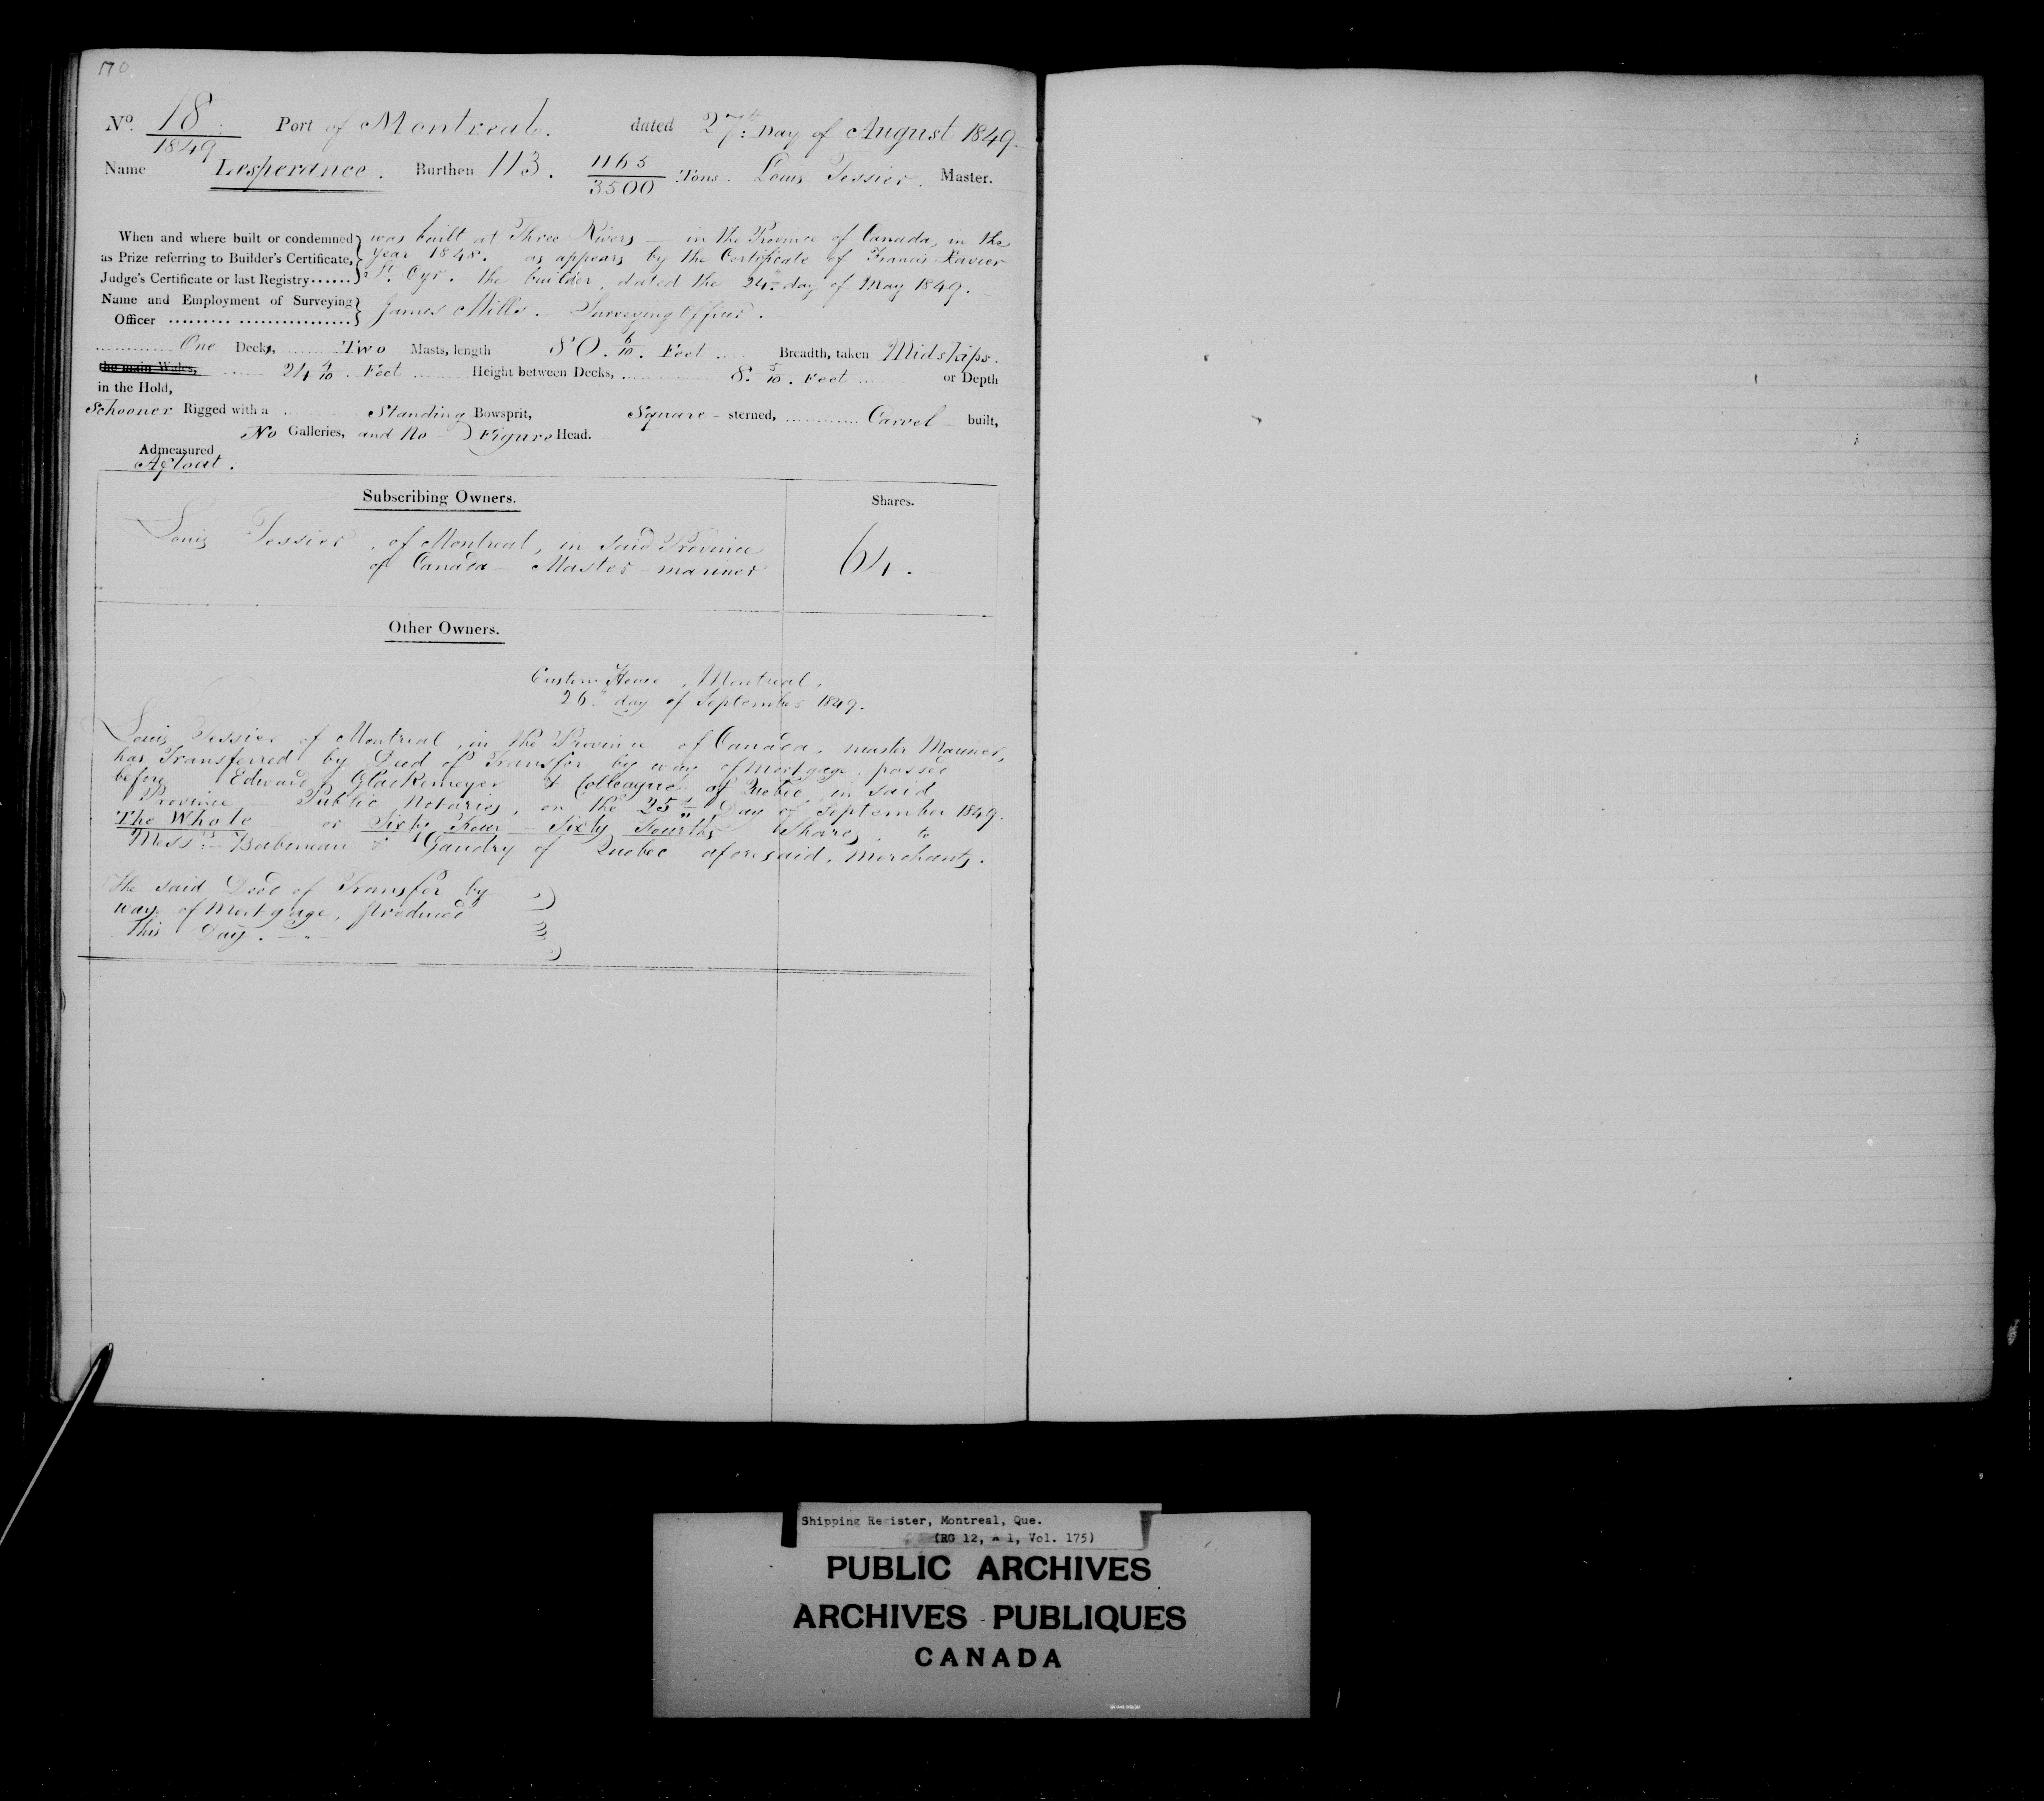 No. 18 / 1849 Port of Montreal. dated 27th Day of August 1849.
Name Lesperance. Burthen 113. 1165/3500 Tons. Louis Tessier. Master.
When and where built or condemned } was built at Three Rivers — in the Province of Canada, in the
as Prize referring to Builder's Certificate, } year 1848. as appears by the Certificate of Francis Xavier
Judge's Certificate or last Registry...... } St. Cyr. the builder, dated the 24th day of May 1849.
Name and Employment of Surveying }
Officer ......... ................ } James Mills. — Surveying Officer.
............ One Deck, ....... Two Masts, length 80. 6/10. Feet .... Breadth, taken Midships.
the main Wales, ...... 24 4/10. Feet ....... Height between Decks, ............ 8. 5/10. Feet .... or Depth
in the Hold,
Schooner Rigged with a ............ Standing Bowsprit, Square - sterned, ............ Carvel — built,
No Galleries, and No — Figure Head.
Admeasured
Afloat.
Subscribing Owners. Shares.
Louis Tessier, of Montreal, in said Province
of Canada — Master mariner 64.
Other Owners.
Custom House, Montreal,
26th day of September 1849.
Louis Tessier of Montreal, in the Province of Canada, master Mariner,
has Transferred by Deed of Transfer by way of Mortgage, passed
before Edward Glackemeyer & Colleague of Quebec, in said
Province — Public Notaries, on the 25th Day of September 1849.
The Whole or Sixty Four — Sixty Fourths Shares, to
Messrs Babineau & Gaudry of Quebec aforesaid, Merchants.
The said Deed of Transfer by
way of Mortgage, produced
This Day.
Shipping Register, Montreal, Que.
(RG 12, A 1, Vol. 175)
PUBLIC ARCHIVES
ARCHIVES PUBLIQUES
CANADA